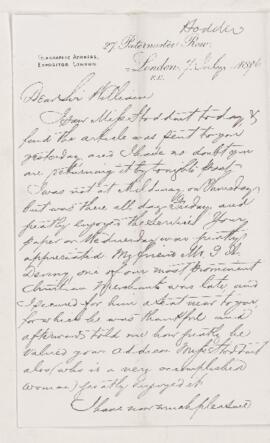 Hodder
27 Paternoster Row,
TELEGRAPHIC ADDRESS,
EXPOSITOR LONDON.
London, 7 July 1896
E.C.
Dear Sir William
I saw Miss Stoddart today &
find the article was sent to you
yesterday and I have no doubt you
are returning it by tonights post
I was not at Mildmay on Thursday
but was there all day Friday and
greatly enjoyed the services. Your
paper on Wednesday was greatly
appreciated. My friend Mr. F. A.
one of our most prominent
Christian Merchants was late and
I secured for him a seat near to you,
for which he was thankful and
afterwards told me how greatly he
valued your address. Miss Stoddart
also (who is a very accomplished
woman) greatly enjoyed it.
I have now much pleasure